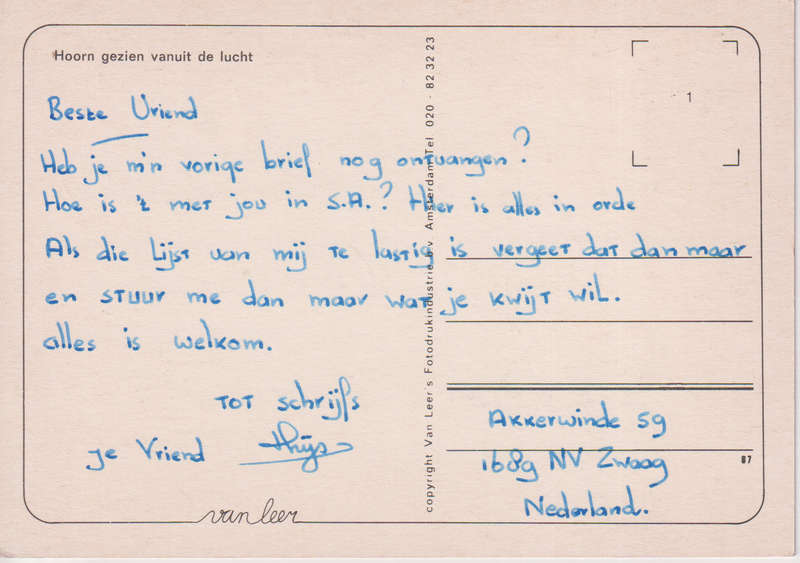 Hoorn gezien vanuit de lucht
1
Beste Vriend
Heb je m'n vorige brief nog ontvangen?
Hoe is 't met jou in S.A.? Hier is alles in orde
Als die lijst van mij te lastig is vergeet dat dan maar
en stuur me dan maar wat je kwijt wil.
alles is welkom.
tot schrijfs
je Vriend Thijs
Akkerwinde 59
1689 NV Zwaag
Nederland.
87
van leer
copyright Van Leer's Fotodrukindustrie bv Amsterdam Tel 020 - 82 32 23